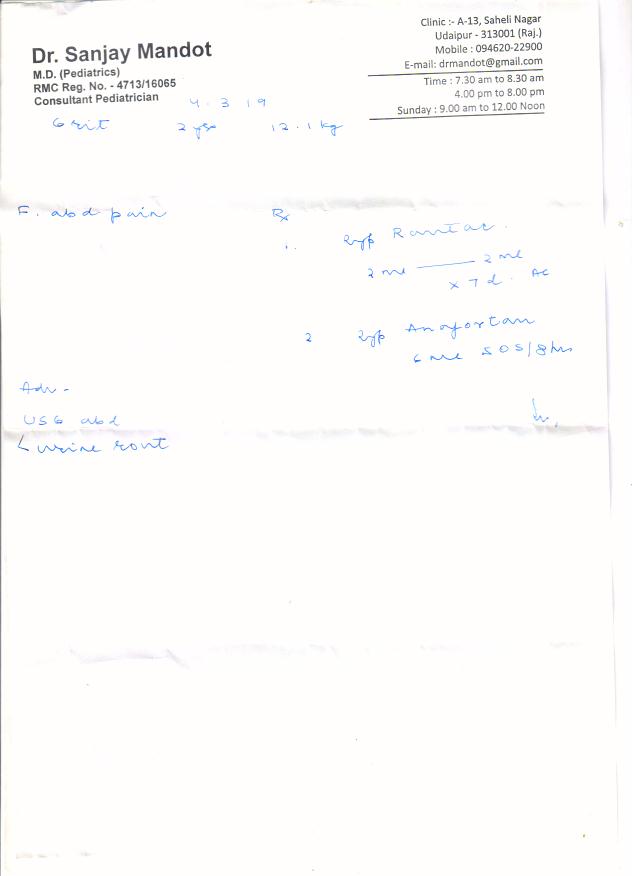 Dr. Sanjay Mandot
M.D. (Pediatrics)
RMC Reg. No. - 4713/16065
Consultant Pediatrician
Clinic :- A-13, Saheli Nagar
Udaipur - 313001 (Raj.)
Mobile : 094620-22900
E-mail: drmandot@gmail.com
Time : 7.30 am to 8.30 am
4.00 pm to 8.00 pm
Sunday : 9.00 am to 12.00 Noon
4 . 3 19
2 yrs 12.1 kg
F. abd pain
Rx
1. Syp Rantac
2 ml — 2 ml
x 7 d. AC
2 Syp Anafortan
6 ml SOS/8hrs
Adv -
USG abd
urine rout